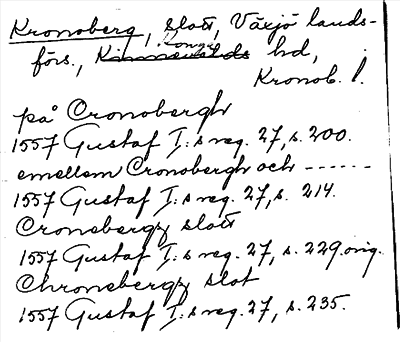 Kronoberg, slott, Växjö lands-
förs., Konga hd,
Kronob. l.
på Cronobergh
1557 Gustaf I:s reg. 27, s. 200.
emellem Cronobergh och ------
1557 Gustaf I:s reg. 27, s. 214.
Cronebergz slott
1557 Gustaf I:s reg. 27, s. 229. orig.
Chronebergz slot
1557 Gustaf I:s reg. 27, s. 235.